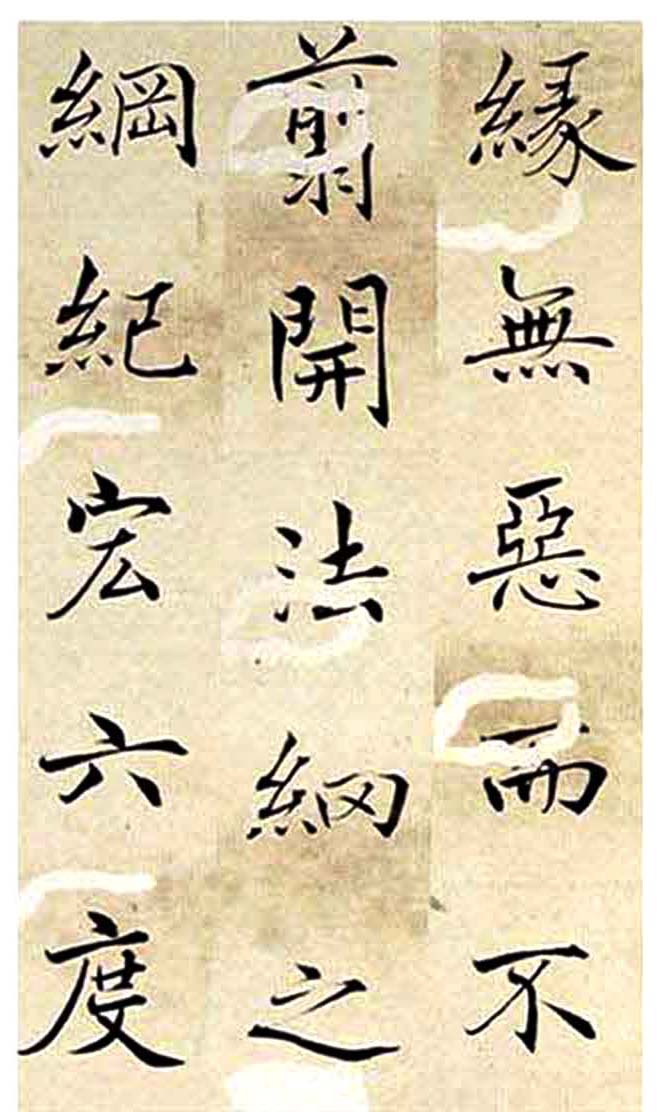 緣無惡而不
翦開法網之
綱紀宏六度